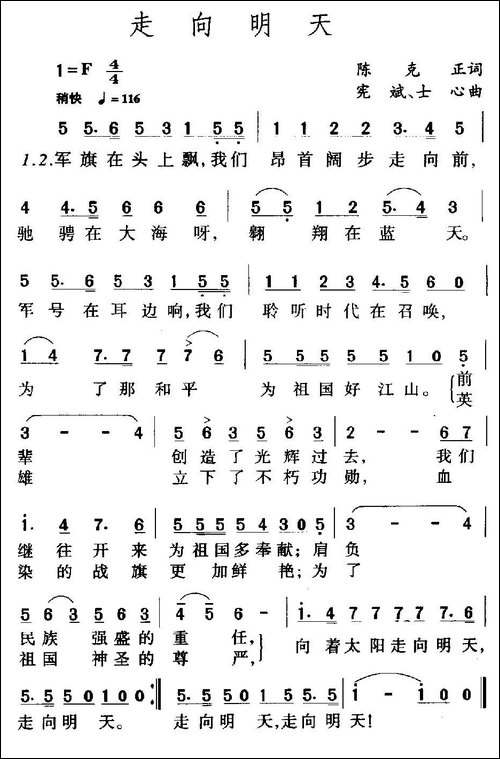 走向明天
1=F 4/4
陈克正词
稍快 ♩=116
宪斌、士心曲
5 5. 6 5 3 1 5 5 | 1 1 2 2 3. 4 5 |
1.2.军旗在头上飘,我们 昂首阔步走向前,
4 4. 5 6 6 6 | 5 5 1 2 5. 4 3 |
驰骋在大海呀, 翱翔在蓝天。
5 5. 6 5 3 1 5 5 | 1 1 2 3 4. 5 6 0 |
军号在耳边响,我们 聆听时代在召唤,
1 4 7. 7 7 7 6 | 5 5 5 5 5 1 0 5 |
为了那和平 为祖国好江山。 前
英
3 - - 4 | 5 6 3 5 6 3 | 2 - - 6 7 |
辈 创造了光辉过去, 我们
雄 立下了不朽功勋, 血
1. 4 7. 6 | 5 5 5 5 4 3 0 5 | 3 - - 4 |
继往开来为祖国多奉献;肩负
染的战旗更加鲜艳;为了
5 6 3 5 5 6 3 | 4 5 6 - | 1. 4 7 7 7 7 7. 6 |
民族强盛的重任, 向着太阳走向明天,
祖国神圣的尊严,
5. 5 5 0 1 0 0 :| 5. 5 5 0 1 5. 5 5 0 | 1 - 1 0 0 |
走向明天。 走向明天,走向明天!